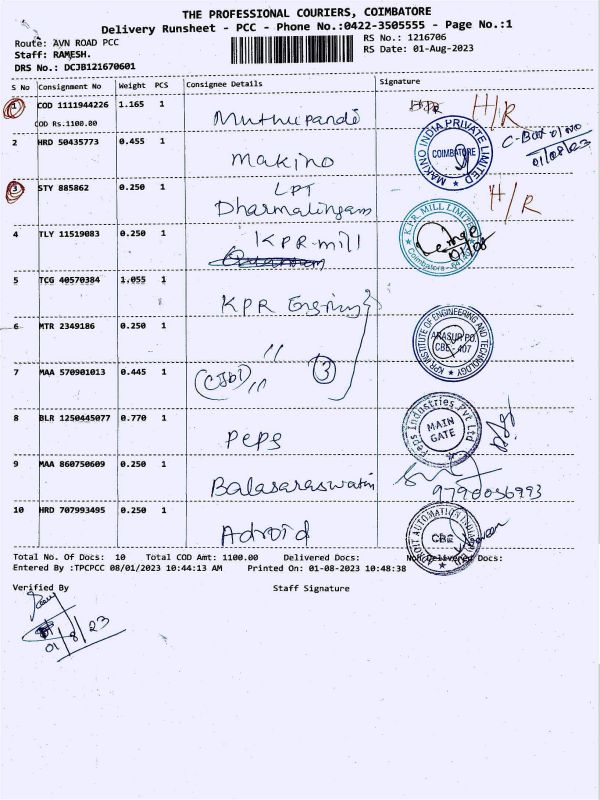 THE PROFESSIONAL COURIERS, COIMBATORE
Delivery Runsheet - PCC - Phone No.:0422-3505555 - Page No.:1
Route: AVN ROAD PCC
RS No.: 1216706
Staff: RAMESH.
RS Date: 01-Aug-2023
DRS No.: DCJB121670601
S No Consignment No Weight PCS Consignee Details Signature
1 COD 1111944226 1.165 1 Muthupandi H/R
COD Rs.1100.00
2 HRD 50435773 0.455 1 Makino
MAKINO INDIA PRIVATE LIMITED
COIMBATORE
01/08/23
3 STY 885862 0.250 1 LPT
Dharmalingam
H/R
4 TLY 11519083 0.250 1 KPR-mill
K.P.R. MILL LIMITED
01/08
5 TCG 40570384 1.055 1 KPR
6 MTR 2349186 0.250 1 "
KPR INSTITUTE OF ENGINEERING AND TECHNOLOGY
ARASUR PO.
CBE - 407
7 MAA 570901013 0.445 1 " 3
8 BLR 1250445077 0.770 1 Peps
Peps Industries Pvt Ltd
MAIN
GATE
9 MAA 860750609 0.250 1
10 HRD 707993495 0.250 1 Adroid
CBE
Total No. Of Docs: 10 Total COD Amt: 1100.00 Delivered Docs: Non Delivered Docs:
Entered By :TPCPCC 08/01/2023 10:44:13 AM Printed On: 01-08-2023 10:48:38
Verified By Staff Signature
01/8/23